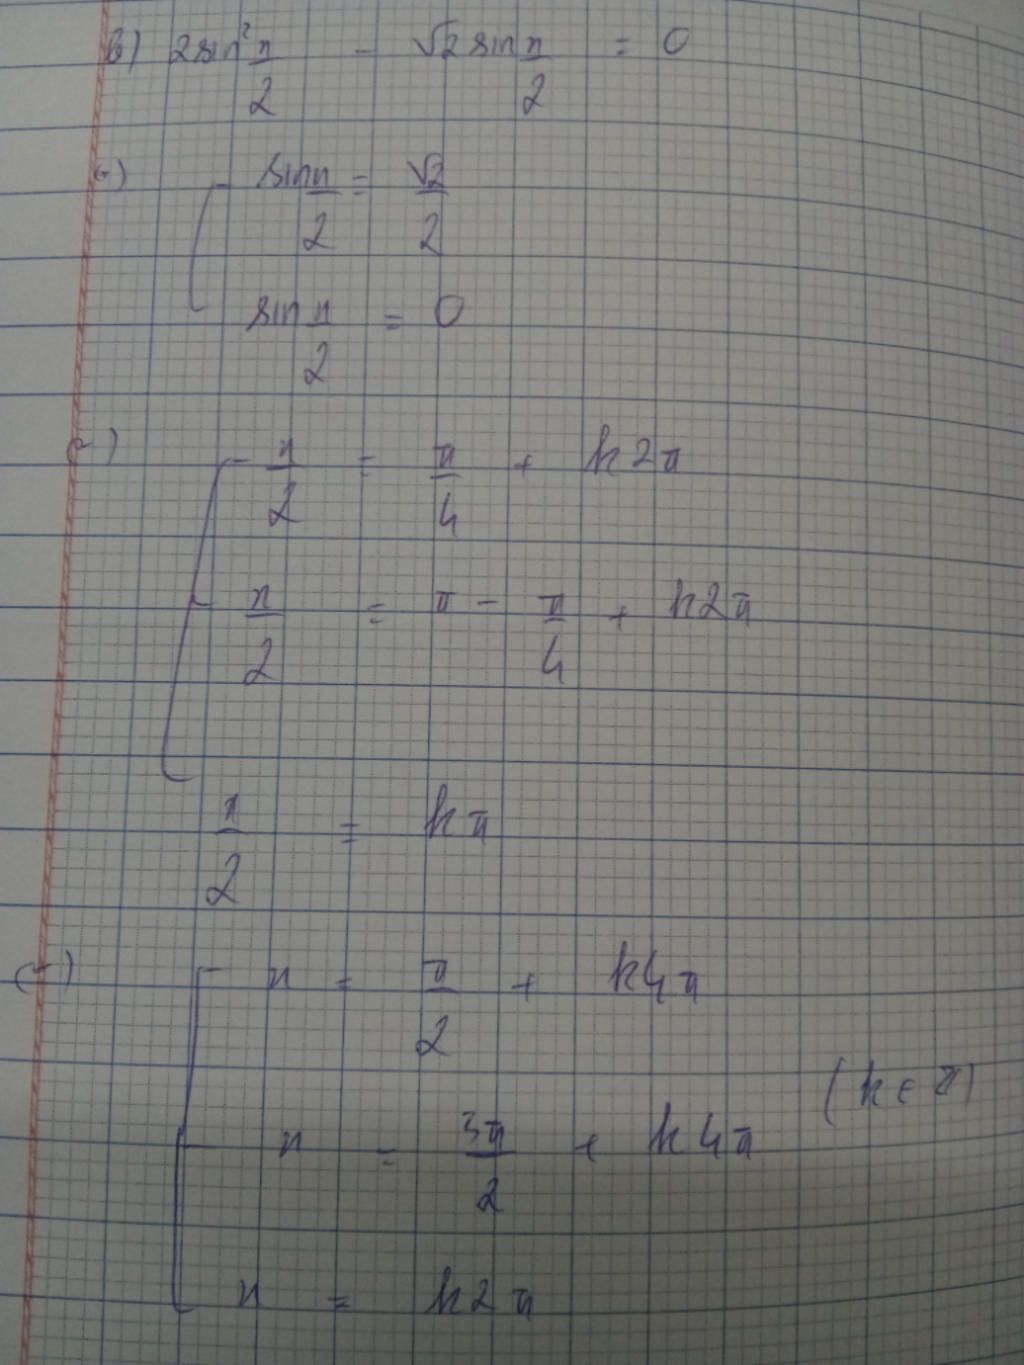 b) 2sin² x/2 - √2 sin x/2 = 0
(=) sin x/2 = √2/2
sin x/2 = 0
(=) x/2 = π/4 + k2π
x/2 = π - π/4 + k2π
x/2 = kπ
(=) x = π/2 + k4π
x = 3π/2 + k4π (k ∈ Z)
x = k2π